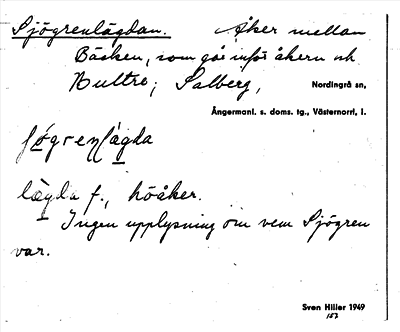 Sjögrenlägdan. Åker mellan
Bäcken, som går inför åkern och
Bultre; Salberg, Nordingrå sn,
Ångermanl. s. doms. tg., Västernorrl, l.
lägda f., höåker.
Ingen upplysning om vem Sjögren
var.
Sven Hiller 1949
157